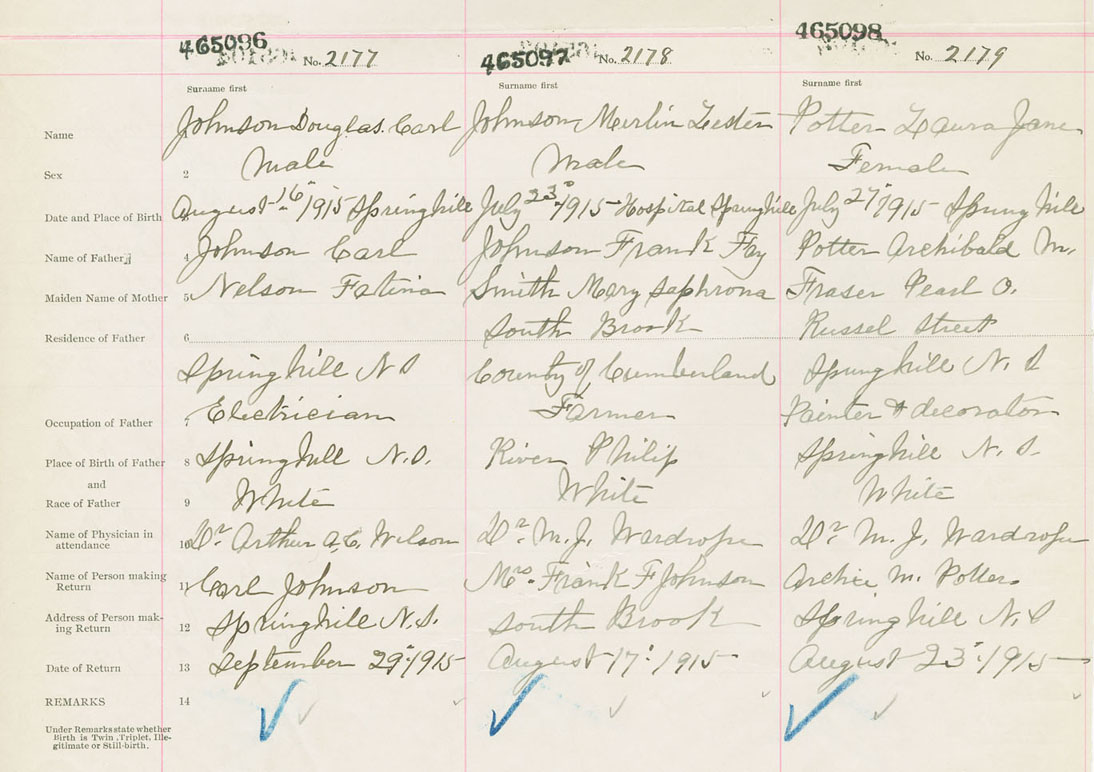 465096 465097 465098
No. 2177 No. 2178 No. 2179
Surname first Surname first Surname first
Name Johnson Douglas. Carl Johnson Merlin Lester Potter Laura Jane
Sex 2 Male Male Female
Date and Place of Birth August 16" 1915 Springhill July 23d 1915 - Hospital Springhill July 27" 1915 Springhill
Name of Father 4 Johnson Carl Johnson Frank Fay Potter Archibald M.
Maiden Name of Mother 5 Nelson Fatina Smith Mary Saphrona Fraser Pearl O.
South Brook Russel Street
Residence of Father 6
Springhill N S County of Cumberland Springhill N. S
Occupation of Father 7 Electrician Farmer Painter & decorator
Place of Birth of Father 8 Springhill N.S. River Philip Springhill N. S.
and
Race of Father 9 White White White
Name of Physician in
attendance 10 Dr. Arthur A.C. Wilson Dr. M. J. Wardrope Dr. M. J. Wardrope
Name of Person making
Return 11 Carl Johnson Mrs. Frank F Johnson Archie M. Potter
Address of Person mak-
ing Return 12 Springhill N.S. South Brook Springhill N. S
Date of Return 13 September 29" 1915 August 17" 1915 August 23" 1915
REMARKS 14
Under Remarks state whether
Birth is Twin, Triplet, Ille-
gitimate or Still-birth.